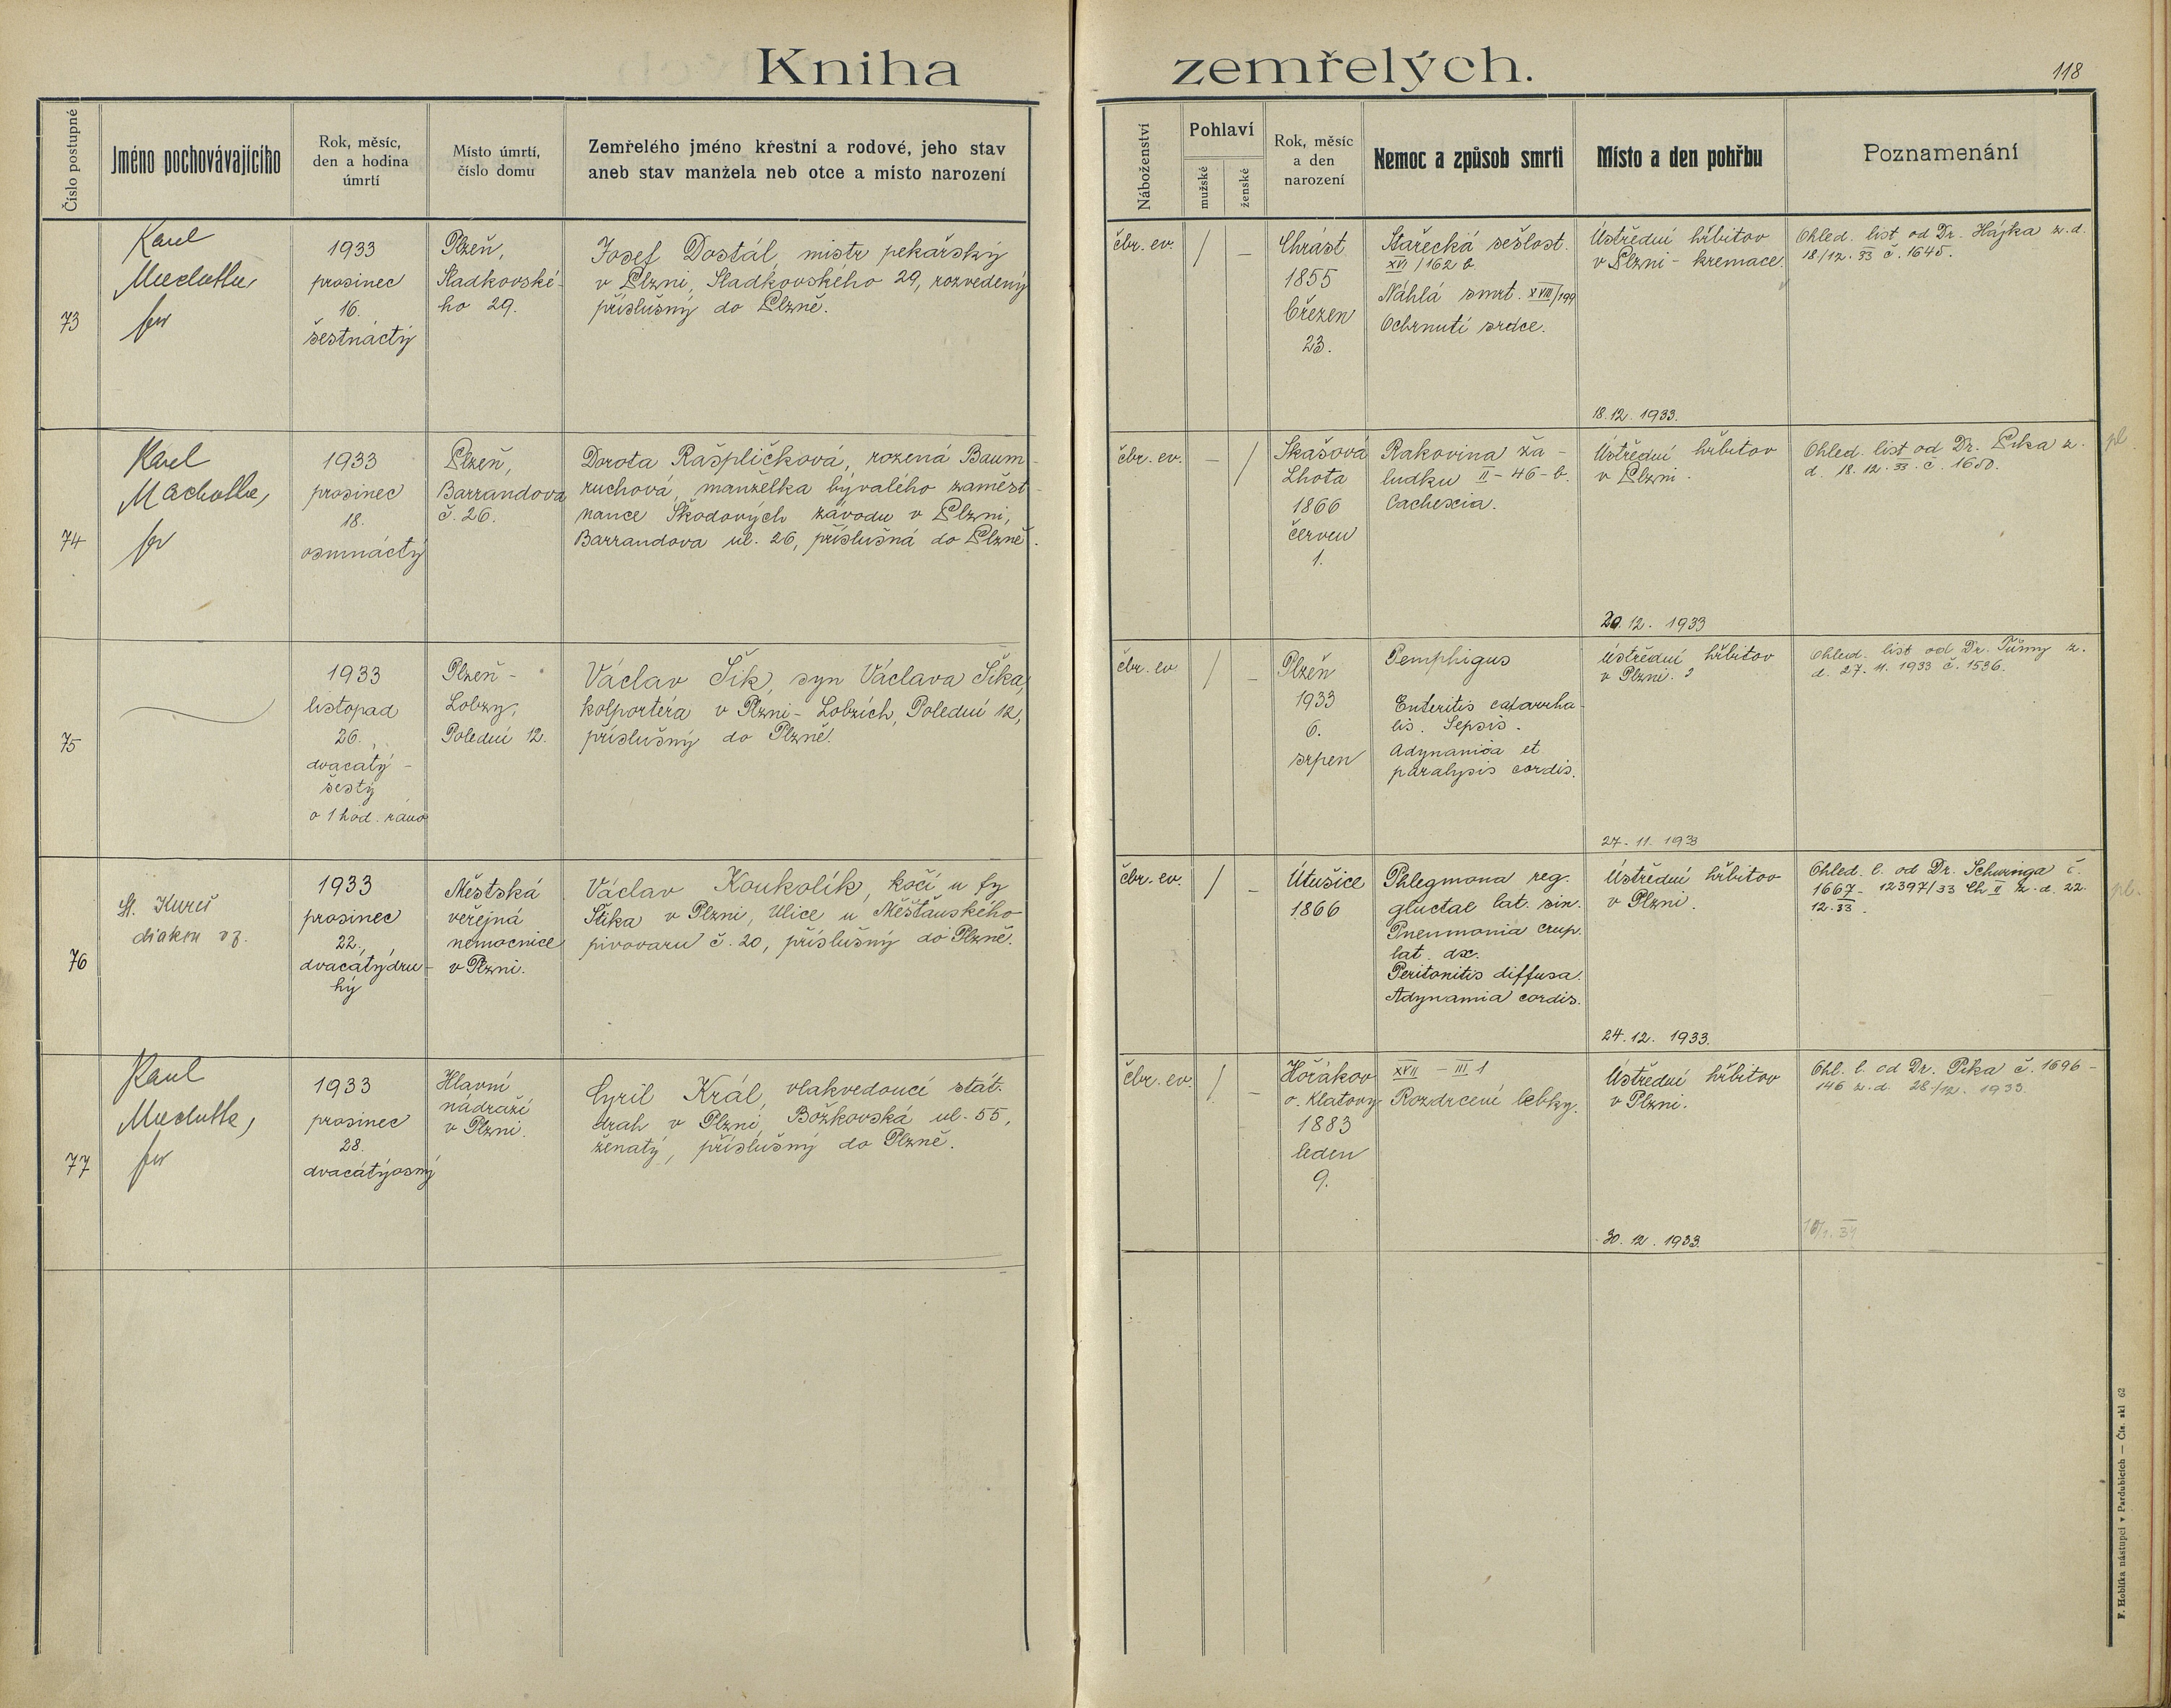 Kniha zemřelých.
118
Číslo postupné
Jméno pochovávajícího
Rok, měsíc,
den a hodina
úmrtí
Místo úmrtí,
číslo domu
Zemřelého jméno křestní a rodové, jeho stav
aneb stav manžela neb otce a místo narození
Náboženství
Pohlaví
mužské
ženské
Rok, měsíc
a den
narození
Nemoc a způsob smrti
Místo a den pohřbu
Poznamenání
73
Karel
1933
prosinec
16.
šestnáctý
Plzeň,
Sladkovské-
ho 29.
Josef Dostál, mistr pekařský
v Plzni, Sladkovského 29, rozvedený
příslušný do Plzně.
čbr. ev.
/
–
Chrást
1855
březen
23.
Stařecká sešlost.
XVI / 162 b.
Náhlá smrt. XVIII/199
Ochrnutí srdce.
Ústřední hřbitov
v Plzni - kremace.
18. 12. 1933.
Ohled. list od Dr. Hájka z. d.
18/12. 33 č. 1645.
74
Karel
Machotka,
1933
prosinec
18.
osmnáctý
Plzeň,
Barrandova
č. 26.
Dorota Rašpličková, rozená Baum-
ruchová, manželka bývalého zaměst-
nance Škodových závodu v Plzni,
Barrandova ul. 26, příslušná do Plzně.
čbr. ev.
–
/
Skašová
Lhota
1866
červen
1.
Rakovina ža-
ludku II - 46 - b.
Cachexia.
Ústřední hřbitov
v Plzni.
20. 12. 1933
Ohled. list od Dr. Pika z.
d. 18. 12. 33. č. 1650.
pl.
75
1933
listopad
26.,
dvacátý-
šestý
o 1 hod. ráno
Plzeň -
Lobzy,
Polední 12.
Václav Šik, syn Václava Šika,
kolportéra v Plzni - Lobzích, Polední 12,
příslušný do Plzně.
čbr. ev
/
–
Plzeň
1933
6.
srpen
Pemphigus
Enteritis catarrha-
lis. Sepsis.
Adynamia et
paralysis cordis.
ústřední hřbitov
v Plzni.
27. 11. 1933
Ohled. list od Dr. z.
d. 27. 11. 1933 č. 1536.
76
diakon
1933
prosinec
22.,
dvacátýdru-
hý
Městská
veřejná
nemocnice
v Plzni.
Václav Koukolík, kočí u fy
Šika v Plzni, Ulice u Měšťanského
pivovaru č. 20, příslušný do Plzně.
čbr. ev.
/
–
Útušice
1866
Phlegmona reg.
gluctae lat. sin.
Pneumonia crup.
lat. dx.
Peritonitis diffusa.
Adynamia cordis.
Ústřední hřbitov
v Plzni.
24. 12. 1933.
Ohled. l. od Dr. Schwinga č.
1667 - 12397/33 Ch II z. d. 22.
12. 33.
pl.
77
Karel
1933
prosinec
28.
dvacátýosmý
Hlavní
nádraží
v Plzni.
Cyril Král, vlakvedoucí stát.
drah v Plzni, Božkovská ul. 55,
ženatý, příslušný do Plzně.
čbr. ev.
/
–
Hořákov
o. Klatovy
1883
leden
9.
XVII - III 1
Rozdrcení lebky.
Ústřední hřbitov
v Plzni.
30. 12. 1933.
Ohl. l. od Dr. Pika č. 1696 -
146 z. d. 28/12. 1933.
F. Hoblíka nástupci v Pardubicích — Čís. skl 62